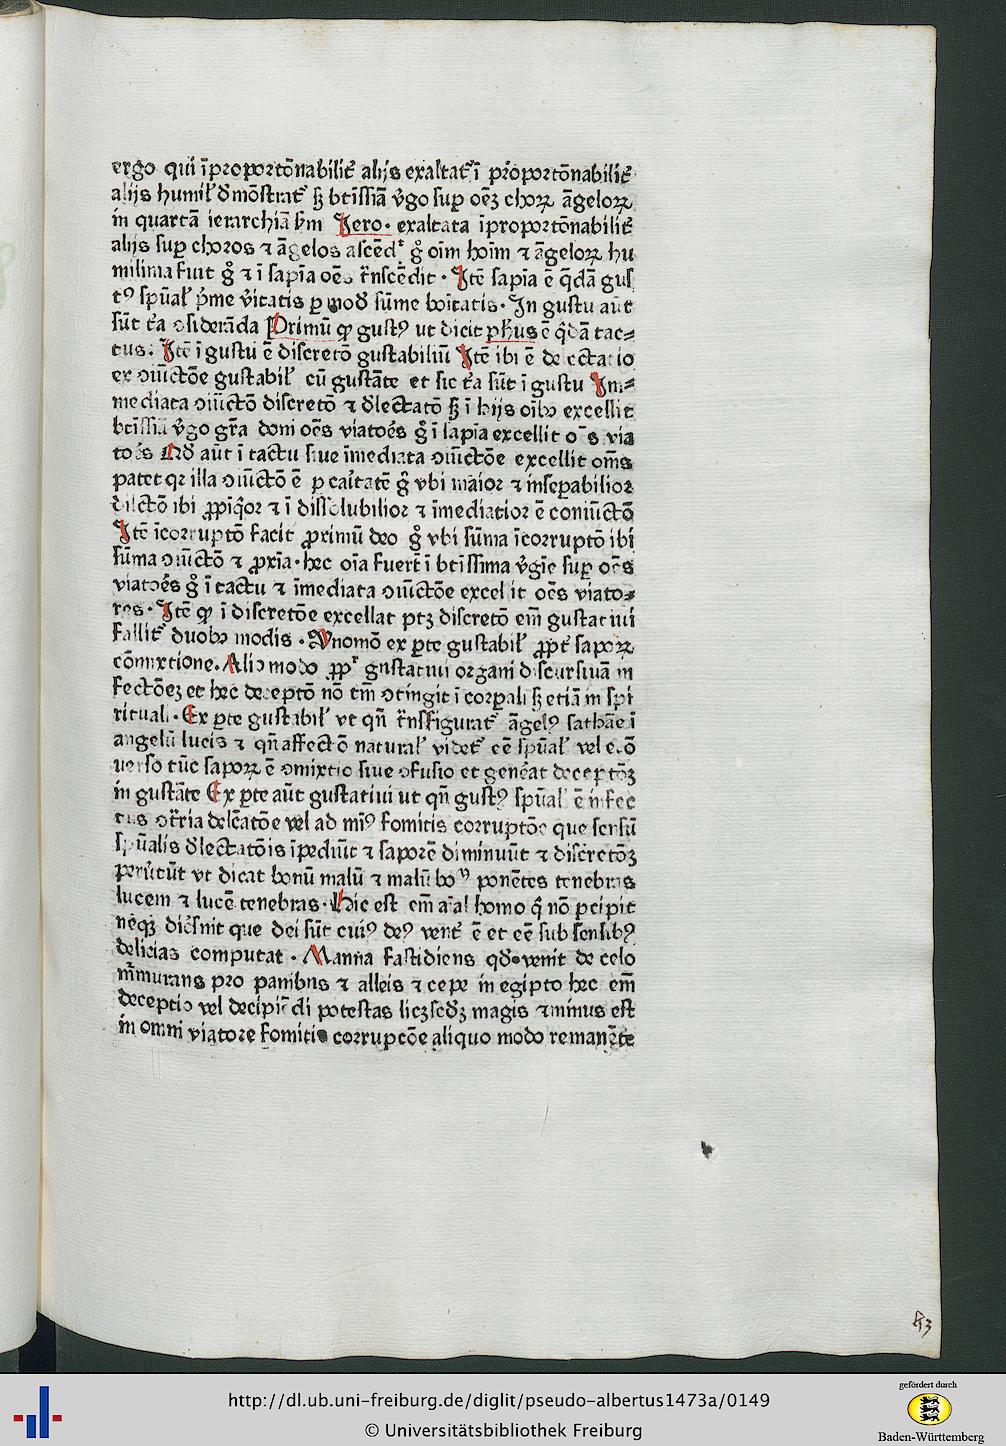 ergo qui īproportōnabilit᷑ alijs exaltat᷑ ī proportōnabilit᷑
alijs humil᷑ dmōstrat᷑ sꝫ btīssīa v̄go sup oēꝫ choꝝ āgeloꝝ
in quartā ierarchiā sm Jero. exaltata īproportōnabilit᷑
alijs sup choros ⁊ āgelos ascēd᷑ gͦ oīm hoīm ⁊ āgeloꝝ hu
milima fuit gͦ ⁊ ī sapīa oēs t᷑nscēdit. Jtē sapīa ē qͥdā gus
tꝰ spūal᷑ pͥme v̄itatis ꝑ mod sūme boītatis. Jn gustu aūt
sūt tͥa ꝯsiderāda Primū ꝙ gustꝰ ut dicit pħus ē qͥdā tac⸗
tus. Jtē ī gustu ē discretō gustabiliū Jtē ibi ē delectatio
ex ꝯiūctōe gustabil᷑ cū gustāte et sic tͥa sūt ī gustu Jm⸗
mediata ꝯiūctō discretō ⁊ dlectatō sꝫ ī hijs oībꝰ excellit
btīssīa v̄go gr̄a doni oēs viatoēs gͦ ī sapīa excellit oēs via
toēs Qd aūt ī tactu siue īmediata ꝯiūctōe excellit oms
patet qr illa ꝯiūctō ē ꝑ caͥtatē gͦ vbi maior ⁊ inseꝑabilior
dilctō ibi ꝓpīqͥor ⁊ ī dissolubilior ⁊ īmediatior ē coniūctō
Jtē īcorruptō facit ꝓximū deo gͦ vbi sūma īcorruptō ibi
sūma ꝯiūctō ⁊ ꝓxīa. hec oīa fuer̄t ī btīssima v̄gīe suꝑ oēs
viatoēs gͦ ī tactu ⁊ īmediata ꝯiūctōe excellit oēs viato⸗
res. Jtē ꝙ ī discretōe excellat ptꝫ discretō em̄ gustatiui
fallit᷑ duobꝰ modis. Vnomō ex ꝑte gustabil᷑ ꝓpt᷑ sapoꝝ
cōmixtione. Alio modo ꝓp᷑ gustatiui organi discursiuā in
fectōeꝫ et hec deceptō nō tm̄ ꝯtingit ī corꝑali sꝫ etiā in spī
rituali. Ex ꝑte gustabil᷑ vt qn̄ t᷑nsfigurat᷑ āgelꝰ sathāe ī
angelū lucis ⁊ qn̄ affectō natural᷑ videt᷑ eē spūal᷑ vel eꝯ
uerso tūc sapoꝝ ē ꝯmixtio siue ꝯfusio et genēat deceptōꝫ
in gustāte Ex ꝑte aūt gustatiui ut qn̄ gustꝰ spūal᷑ ē infec
tus ꝯt᷑ria delcatōe vel ad miꝰ fomitis corruptōe que sensū
spūalis dlectatōis īpediūt ⁊ saporē diminuūt ⁊ discretōꝫ
ꝑuertūt vt dicat bonū malū ⁊ malū boᵐ ponētes tenebras
lucem ⁊ lucē tenebras. Hic est em̄ aīal homo qͥ nō ꝑcipit
neqꝫ discͥnit que dei sūt cuiꝰ deꝰ vent᷑ ē et eē sub sensibꝰ
delicias computat. Manna fastidiens qd venit de celo
murmurans pro panibus ⁊ alleis ⁊ cepe in egipto hec em̄
deceptio vel decipiēdi potestas licꝫ sedꝫ magis ⁊ minus est
in omni viatore fomitis corrupcōe aliquo modo remanēte
http://dl.ub.uni-freiburg.de/diglit/pseudo-albertus1473a/0149
© Universitätsbibliothek Freiburg
gefördert durch
Baden-Württemberg